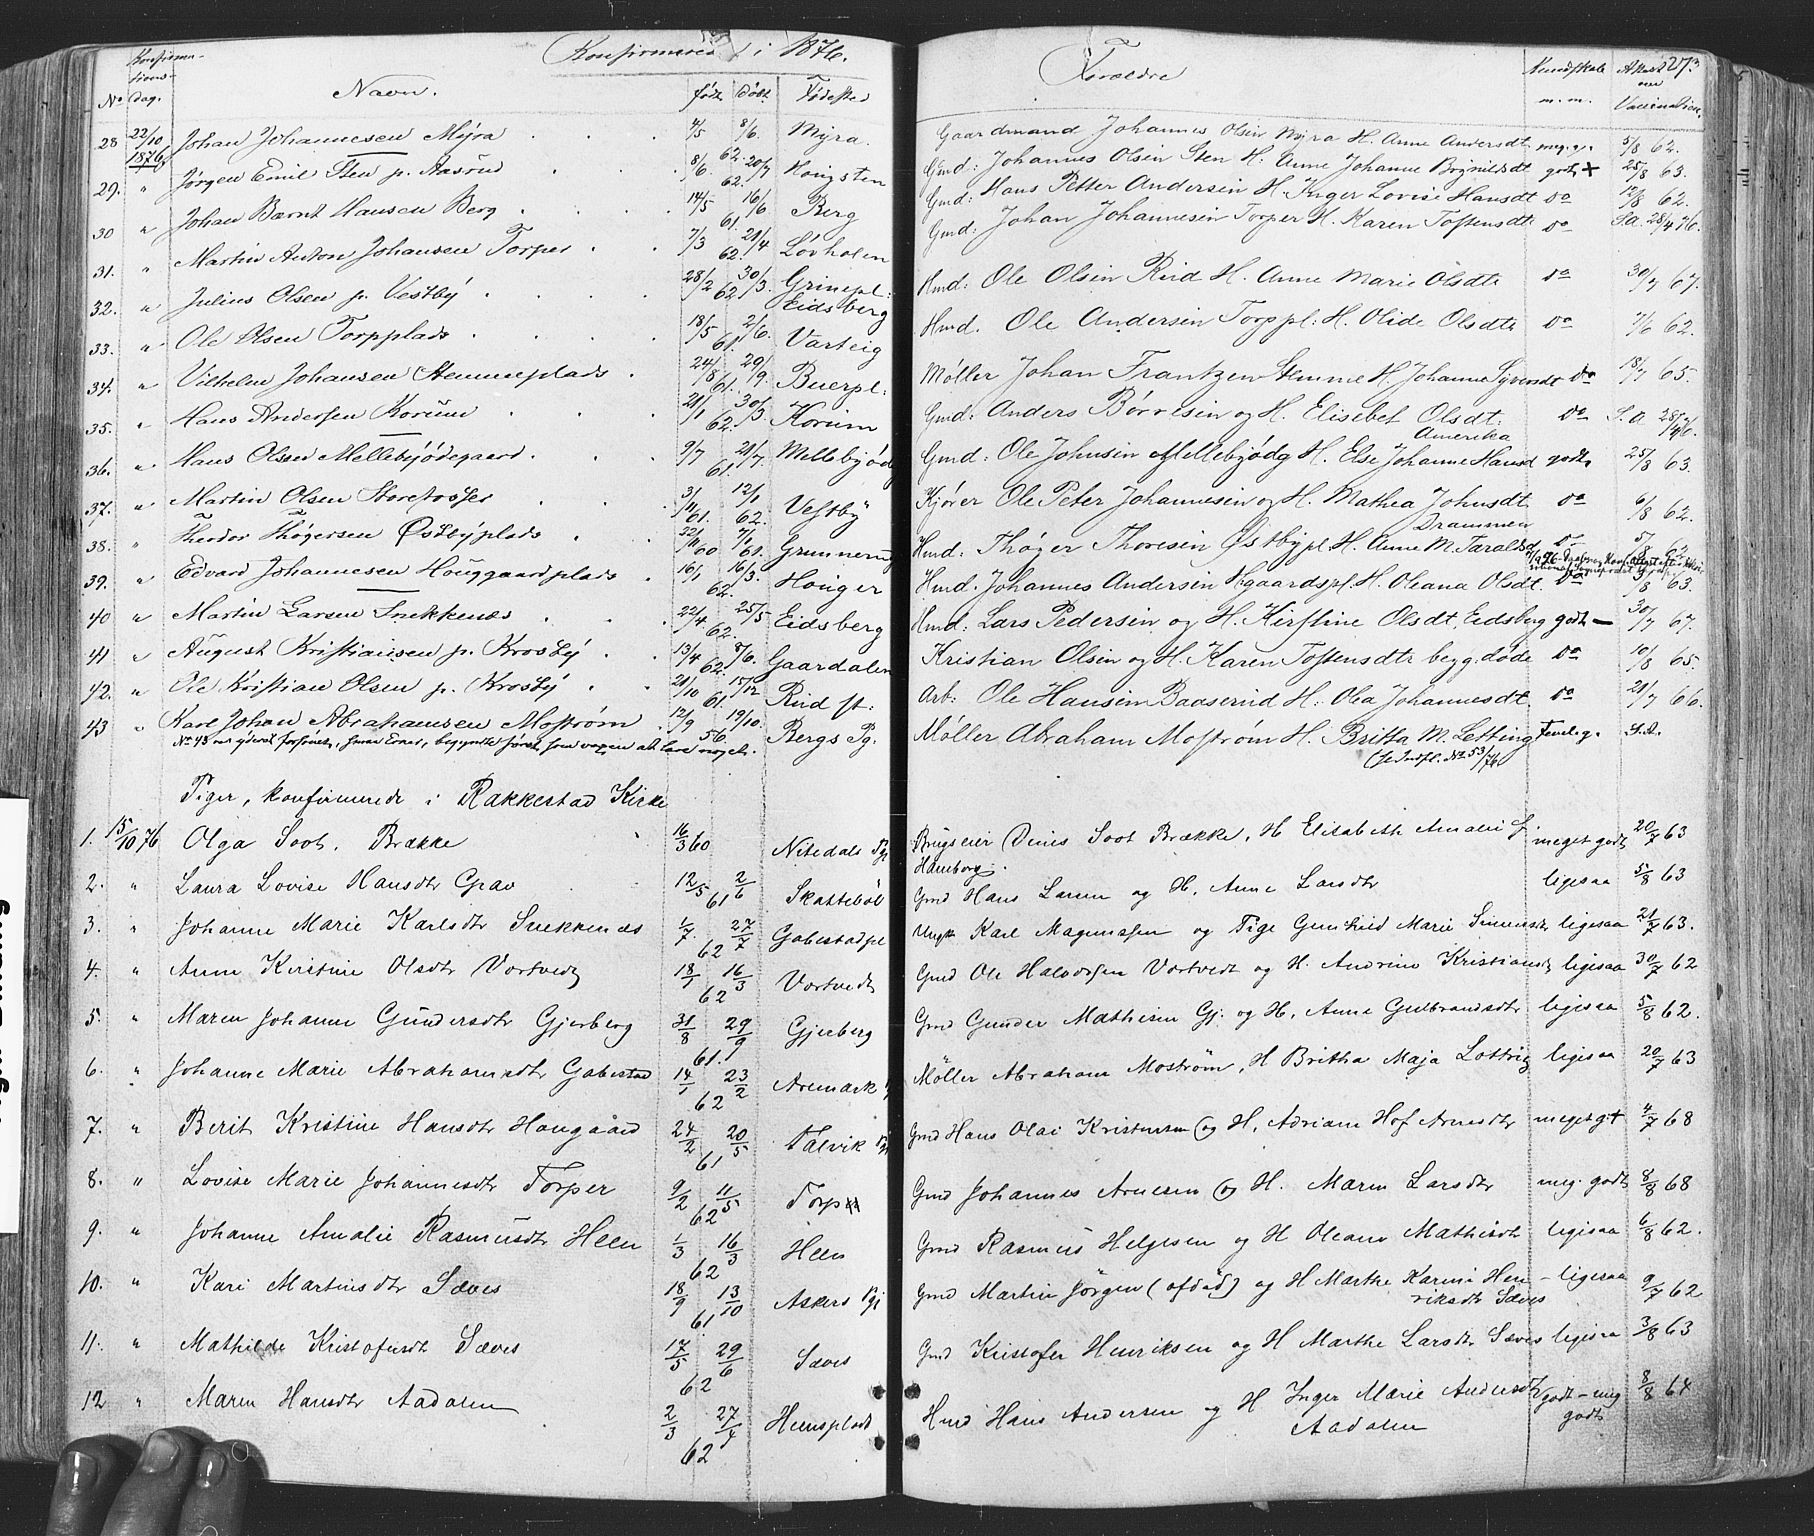 Konfirmerede i 1876.
Forældre
273
No
Konfirmations-dag.
Navn.
født
døbt
Fødested
Kundskab m.m.
Attest om Vaccination.
28 22/10 1876 Johan Johannesen Myra 4/5 62. 8/6. Myra. Gaardmand Johannes Olsen Myra H. Anne Andersdt meg. g. 5/8 62.
29. " Jørgen Emil Sten p. Aasrud 8/6 62. 20/7 Kongsten Gmd: Johannes Olsen Sten H. Anne Johanne Brynildsdt godt + 25/8 63.
30 " Johan Bernt Hansen Berg 14/5 61. 16/6 Berg Gmd: Hans Petter Andersen H. Inger Lovise Hansdt do 12/8 62.
31. " Martin Anton Johansen Torper 7/3 62. 21/4 Løvholen Gmd: Johan Johannesen Torper H. Karen Tostensdtr do S.a. 28/4 76.
32. " Julius Olsen p. Vestby 28/2 62 30/3 Grinepl: Eidsberg Hmd: Ole Olsen Rud H. Anne Marie Olsdtr do 30/7 67.
33. " Ole Olsen Torpplads 18/5 61. 2/6. Varteig Hmd. Ole Andersen Torppl: H. Olide Olsdtr do 7/6 62.
34. " Vilhelm Johansen Stemmeplads 24/8 61. 29/9. Buerpl: Møller Johan Frantzen Stemme H. Johanne Syversdt do 18/7 65.
35. " Hans Andersen Korum 21/1 62. 30/3 Korum Gmd: Anders Børresen og H. Elisebet Olsdt. do S.a 28/4 76.
36. " Hans Olsen Mellebyødegaard 9/7 61. 21/7. Mellebyødg Gmd: Ole Johnsen Mellebyødg H. Else Johanne Hansd Amerika godt 25/8 63.
37. " Martin Olsen Storefosser 3/11 61. 12/1 62. Vestby Kjører Ole Peter Johannesen og H. Mathea Johnsdt Drammen do 6/8 62.
38. " Theodor Thøgersen Østbyplads 22/11 60 7/1 61. Grunnerud Hmd: Thøger Thoresen Østbypl. H. Anne M. Taraldsd do 5/8 62
39. " Edvard Johannesen Houggaardplads 16/1 62. 16/3. Houger Hmd: Johannes Andersen Hgaardspl. H. Oleana Olsdt. do 3/8 63.
40 " Martin Larsen Snekkenæs 22/4 62. 25/5 Eidsberg Hmd: Lars Pedersen og H. Kirstine Olsdt, Eidsberg godt – 30/7 67.
41 " August Kristiansen p. Krosby 13/4 62. 8/6. Gaardalen Kristian Olsen og H. Karen Tostensdtr begg. døde do 10/8 65.
42. " Ole Kristian Olsen p. Krosby 21/10 61. 15/12 Rud st: Arb: Ole Hansen Baaserud H. Olea Johannesdt. do 21/7 66.
43 " Karl Johan Abrahamsen Mostrøm 12/9 56. 19/10. Bergs Pg. Møller Abraham Mostrøm H. Britta M. Letting temel. g. S.A.
(se Indfl. No 53/76
Piger, konfirmerede i Rakkestad Kirke
1. 15/10 76 Olga Soot, Brække 16/3 60 Nitedals Pgj Brugseier Dinis Soot Brække, H Elisabeth Amalie f. Haneborg. meget godt 20/7 63
2. " Laura Lovise Hansdtr Grav 12/5 61 2/6 Skattebøl Gmd Hans Larsen og H. Anne Larsdtr ligesaa 5/8 63
3. " Johanne Marie Karlsdtr Snekkenæs 1/7. 62 27/7 Gabestadpl Ungk Karl Magnussen og Pige Gunhild Marie Simensdtr ligesaa 21/7 63.
4. " Anne Kristine Olsdtr Vortvedt 18/1 62 16/3 Vortvedt Gmd Ole Halvorsen Vortvedt og H. Andrine Kristiansdt ligesaa 30/7 62
5. " Maren Johanne Gundersdtr Gjerberg 31/8 61. 29/9 Gjerberg Gmd Gunder Mathisen Gj. og H. Anne Gulbrandsdtr ligesaa 5/8 62.
6. " Johanne Marie Abrahamsdtr Gabestad 14/1 62 23/2 Aremark Møller Abraham Mostrøm, H Britha Maja Lottrig ligesaa 20/7 63
7. " Berit Kristine Hansdtr Haugaard 24/2 61 20/5 Talvik Pgj Gmd Hans Olai Kristensen og H. Adriane Hof Arnesdtr meget gt 4/7 68
8. " Lovise Marie Johannesdtr Torper 9/2 62 11/5 Torper Gmd Johannes Arnesen og H. Maren Larsdtr meg. godt 8/8 68
9. " Johanne Amalie Rasmusdtr Heen 1/3 62 16/3 Heen Gmd Rasmus Helgesen og H Oleane Mathisdt ligesaa 6/8 62.
10. " Kari Martinsdtr Sæves 18/9 61 13/10 Askers Pgj Gmd Martin Jørgen (afdød) og H Marthe Karine Henriksdtr Sæves – ligesaa 9/7 62
11. " Mathilde Kristofersdt Sæves 17/5 62 29/6 Sæves Gmd Kristofer Henriksen og H Marthe Larsdtr Sæves ligesaa 3/8 63
12 " Maren Hansdtr Aadalen 2/3 62 27/4 Heensplads Hmd Hans Andersen og H Inger Marie Andersdtr Aadalen godt – meg godt 8/8 64